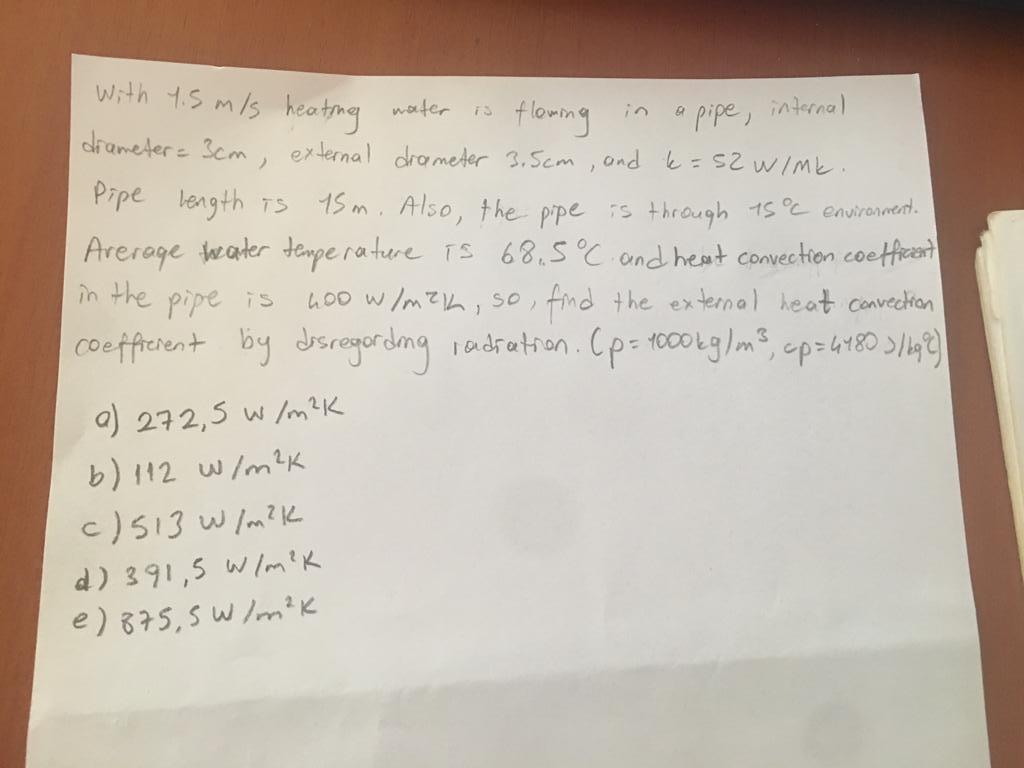 With 1.5 m/s heating water is flowing in a pipe, internal
diameter = 3cm, external diameter 3.5cm, and k = 52 W/mk.
Pipe length is 15m. Also, the pipe is through 15°C environment.
Average water temperature is 68.5°C and heat convection coefficient
in the pipe is 400 W/m²K, so, find the external heat convection
coefficient by disregarding radiation. (ρ = 1000kg/m³, cp = 4180 J/kg°C)
a) 272,5 W/m²K
b) 112 W/m²K
c) 513 W/m²K
d) 391,5 W/m²K
e) 875,5 W/m²K